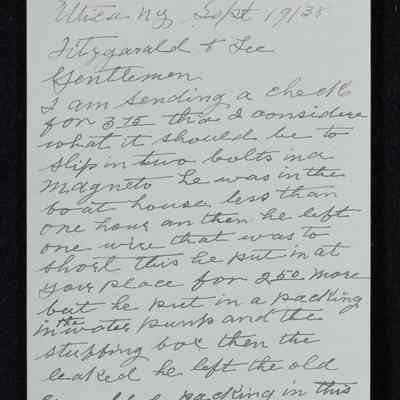 Utica NY Sept 19/38
Fitzgarald & Lee
Gentlemen
I am sending a check
for 3 75 this I considere
what it should be to
slip in two bolts in a
Magneto he was in the
boat house less than
one hour an then he left
one wire that was to
short this he put in at
your place for 2 50 more
but he put in a packing
in the water pump and the
stuffing box then the
leaked he left the old
packing in this